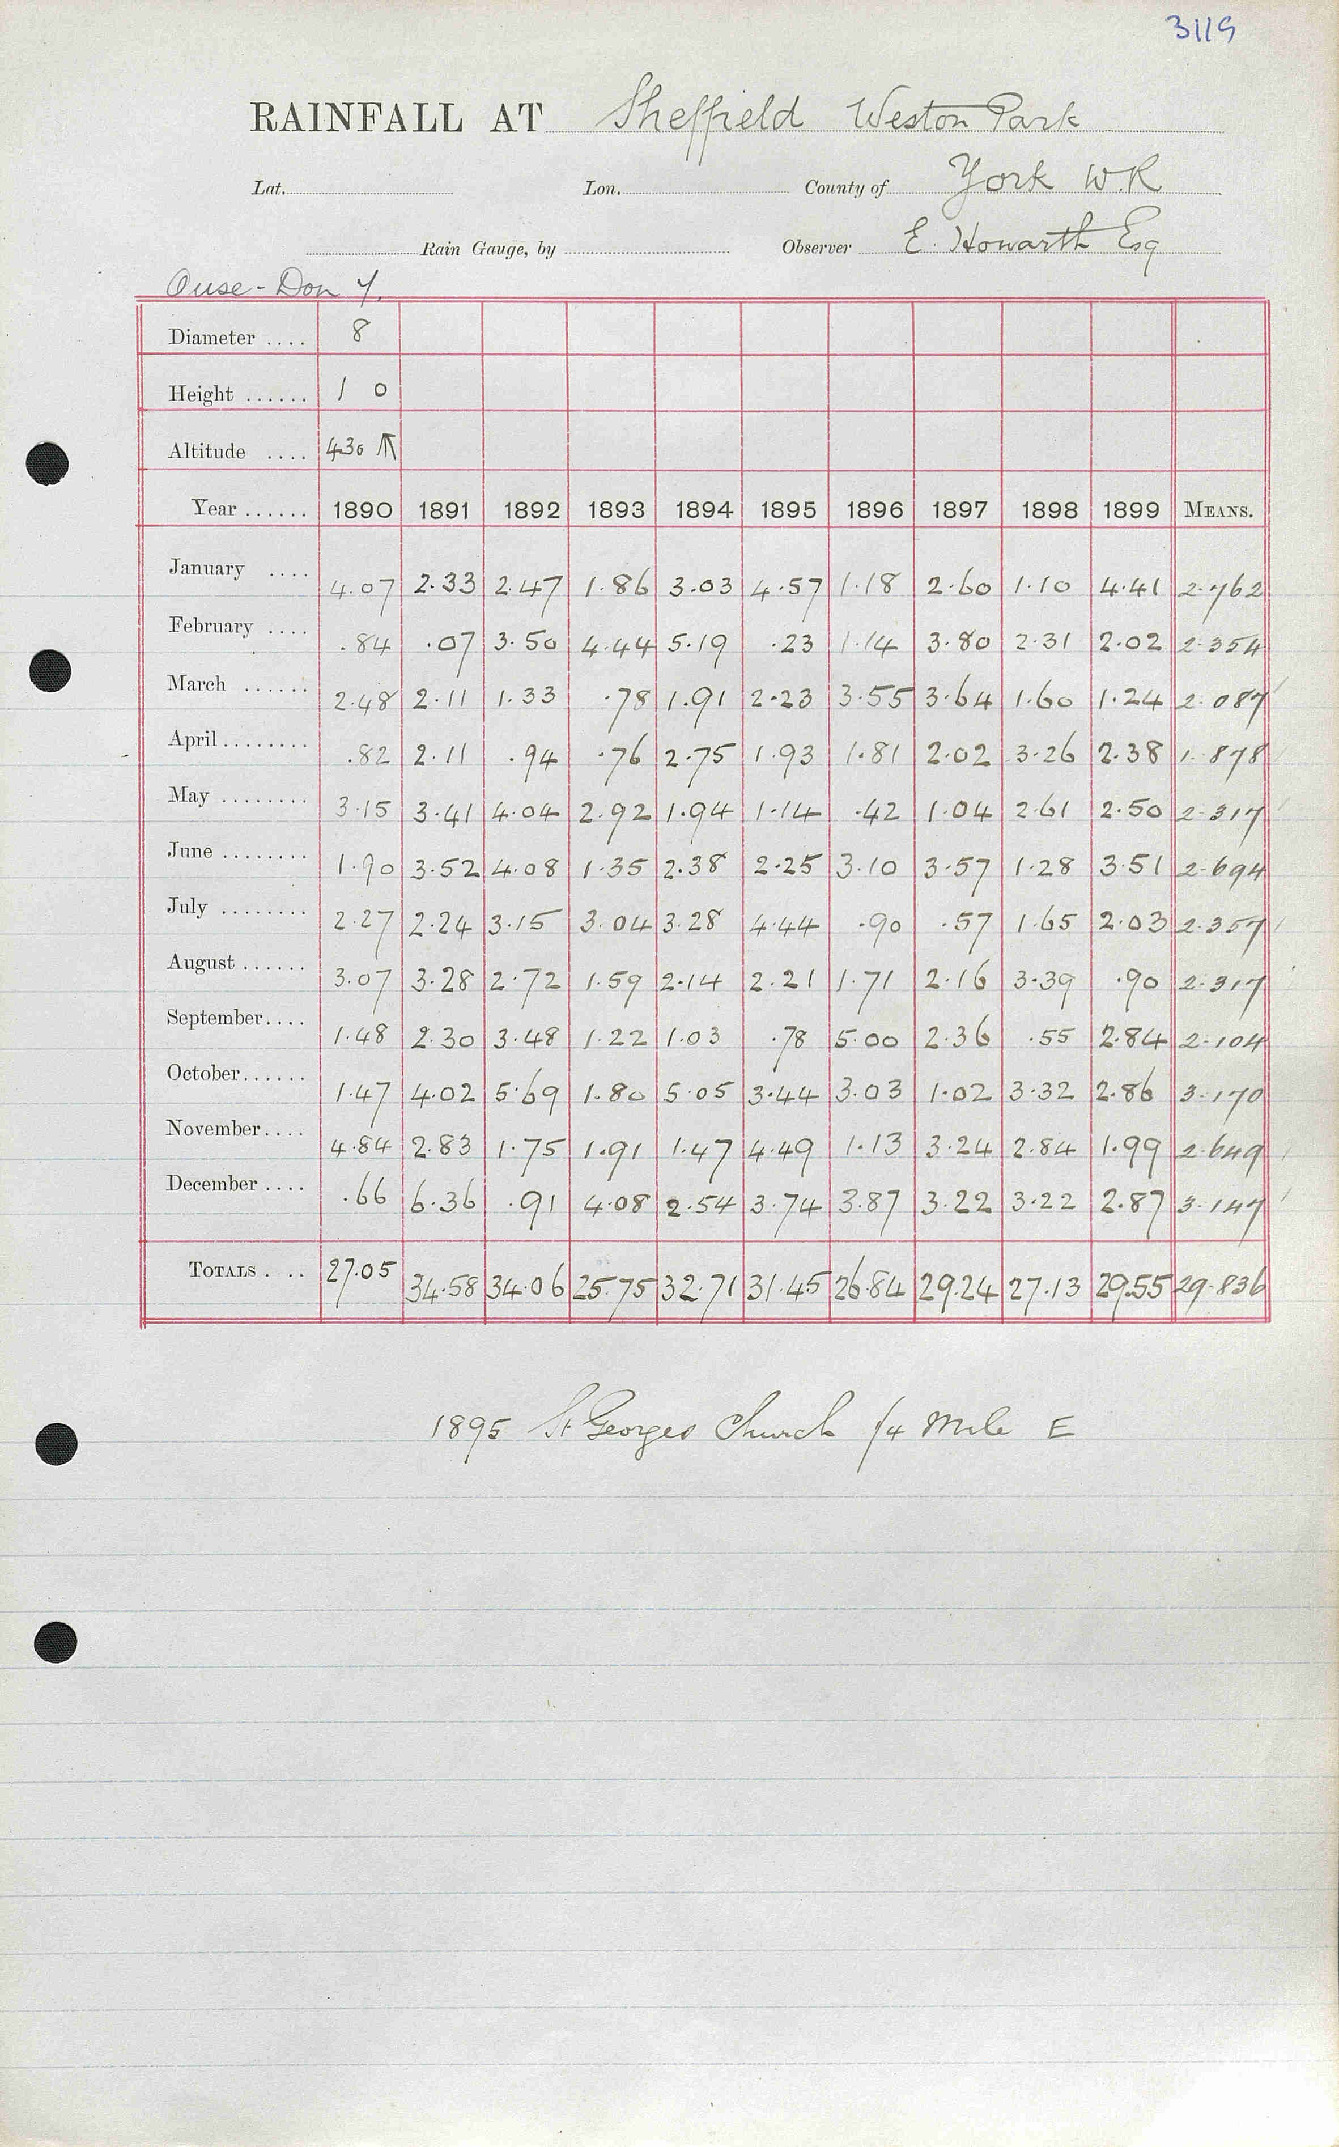 3119
RAINFALL AT Sheffield Weston Park
Lat. Lon. County of York W.R
Rain Gauge, by Observer E. Howarth Esq
Ouse-Don Y.
Diameter .... 8
Height ...... 1 0
Altitude .... 430 ↑
Year ...... 1890 1891 1892 1893 1894 1895 1896 1897 1898 1899 MEANS.
January .... 4.07 2.33 2.47 1.86 3.03 4.57 1.18 2.60 1.10 4.41 2.762
February .... .84 .07 3.50 4.44 5.19 .23 1.14 3.80 2.31 2.02 2.354
March ...... 2.48 2.11 1.33 .78 1.91 2.23 3.55 3.64 1.60 1.24 2.087
April ........ .82 2.11 .94 .76 2.75 1.93 1.81 2.02 3.26 2.38 1.878
May ........ 3.15 3.41 4.04 2.92 1.94 1.14 .42 1.04 2.61 2.50 2.317
June ........ 1.90 3.52 4.08 1.35 2.38 2.25 3.10 3.57 1.28 3.51 2.694
July ........ 2.27 2.24 3.15 3.04 3.28 4.44 .90 .57 1.65 2.03 2.357
August ...... 3.07 3.28 2.72 1.59 2.14 2.21 1.71 2.16 3.39 .90 2.317
September .... 1.48 2.30 3.48 1.22 1.03 .78 5.00 2.36 .55 2.84 2.104
October ...... 1.47 4.02 5.69 1.80 5.05 3.44 3.03 1.02 3.32 2.86 3.170
November .... 4.84 2.83 1.75 1.91 1.47 4.49 1.13 3.24 2.84 1.99 2.649
December .... .66 6.36 .91 4.08 2.54 3.74 3.87 3.22 3.22 2.87 3.147
TOTALS . .. 27.05 34.58 34.06 25.75 32.71 31.45 26.84 29.24 27.13 29.55 29.836
1895 St Georges Church 1/4 Mile E